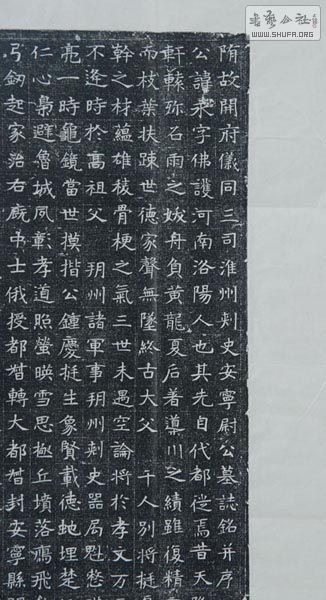 書藝公社
WWW.SHUFA.ORG
隋故開府儀同三司淮州刾史安寧尉公墓誌銘并序
公諱永字佛護河南洛陽人也其先自代都從焉昔天
軒轅弥召雨之妭舟負黃龍夏后著導川之績雖復精
而枝葉扶疎世德家聲無墜終古大父 千人別將挺
幹之材蘊雄稜骨梗之氣三世未遇空論將於孝文万
不逢時於高祖父 朔州諸軍事朔州刾史器局魁悊
亮一時龜鏡當世摸揩公鍾慶挺生象賢載德虵埋楚
仁心梟避魯城夙彰孝道照螢暎雪思極丘墳落鴈飛
弓釰起家治右廄中士俄授都督轉大都督封安寧縣